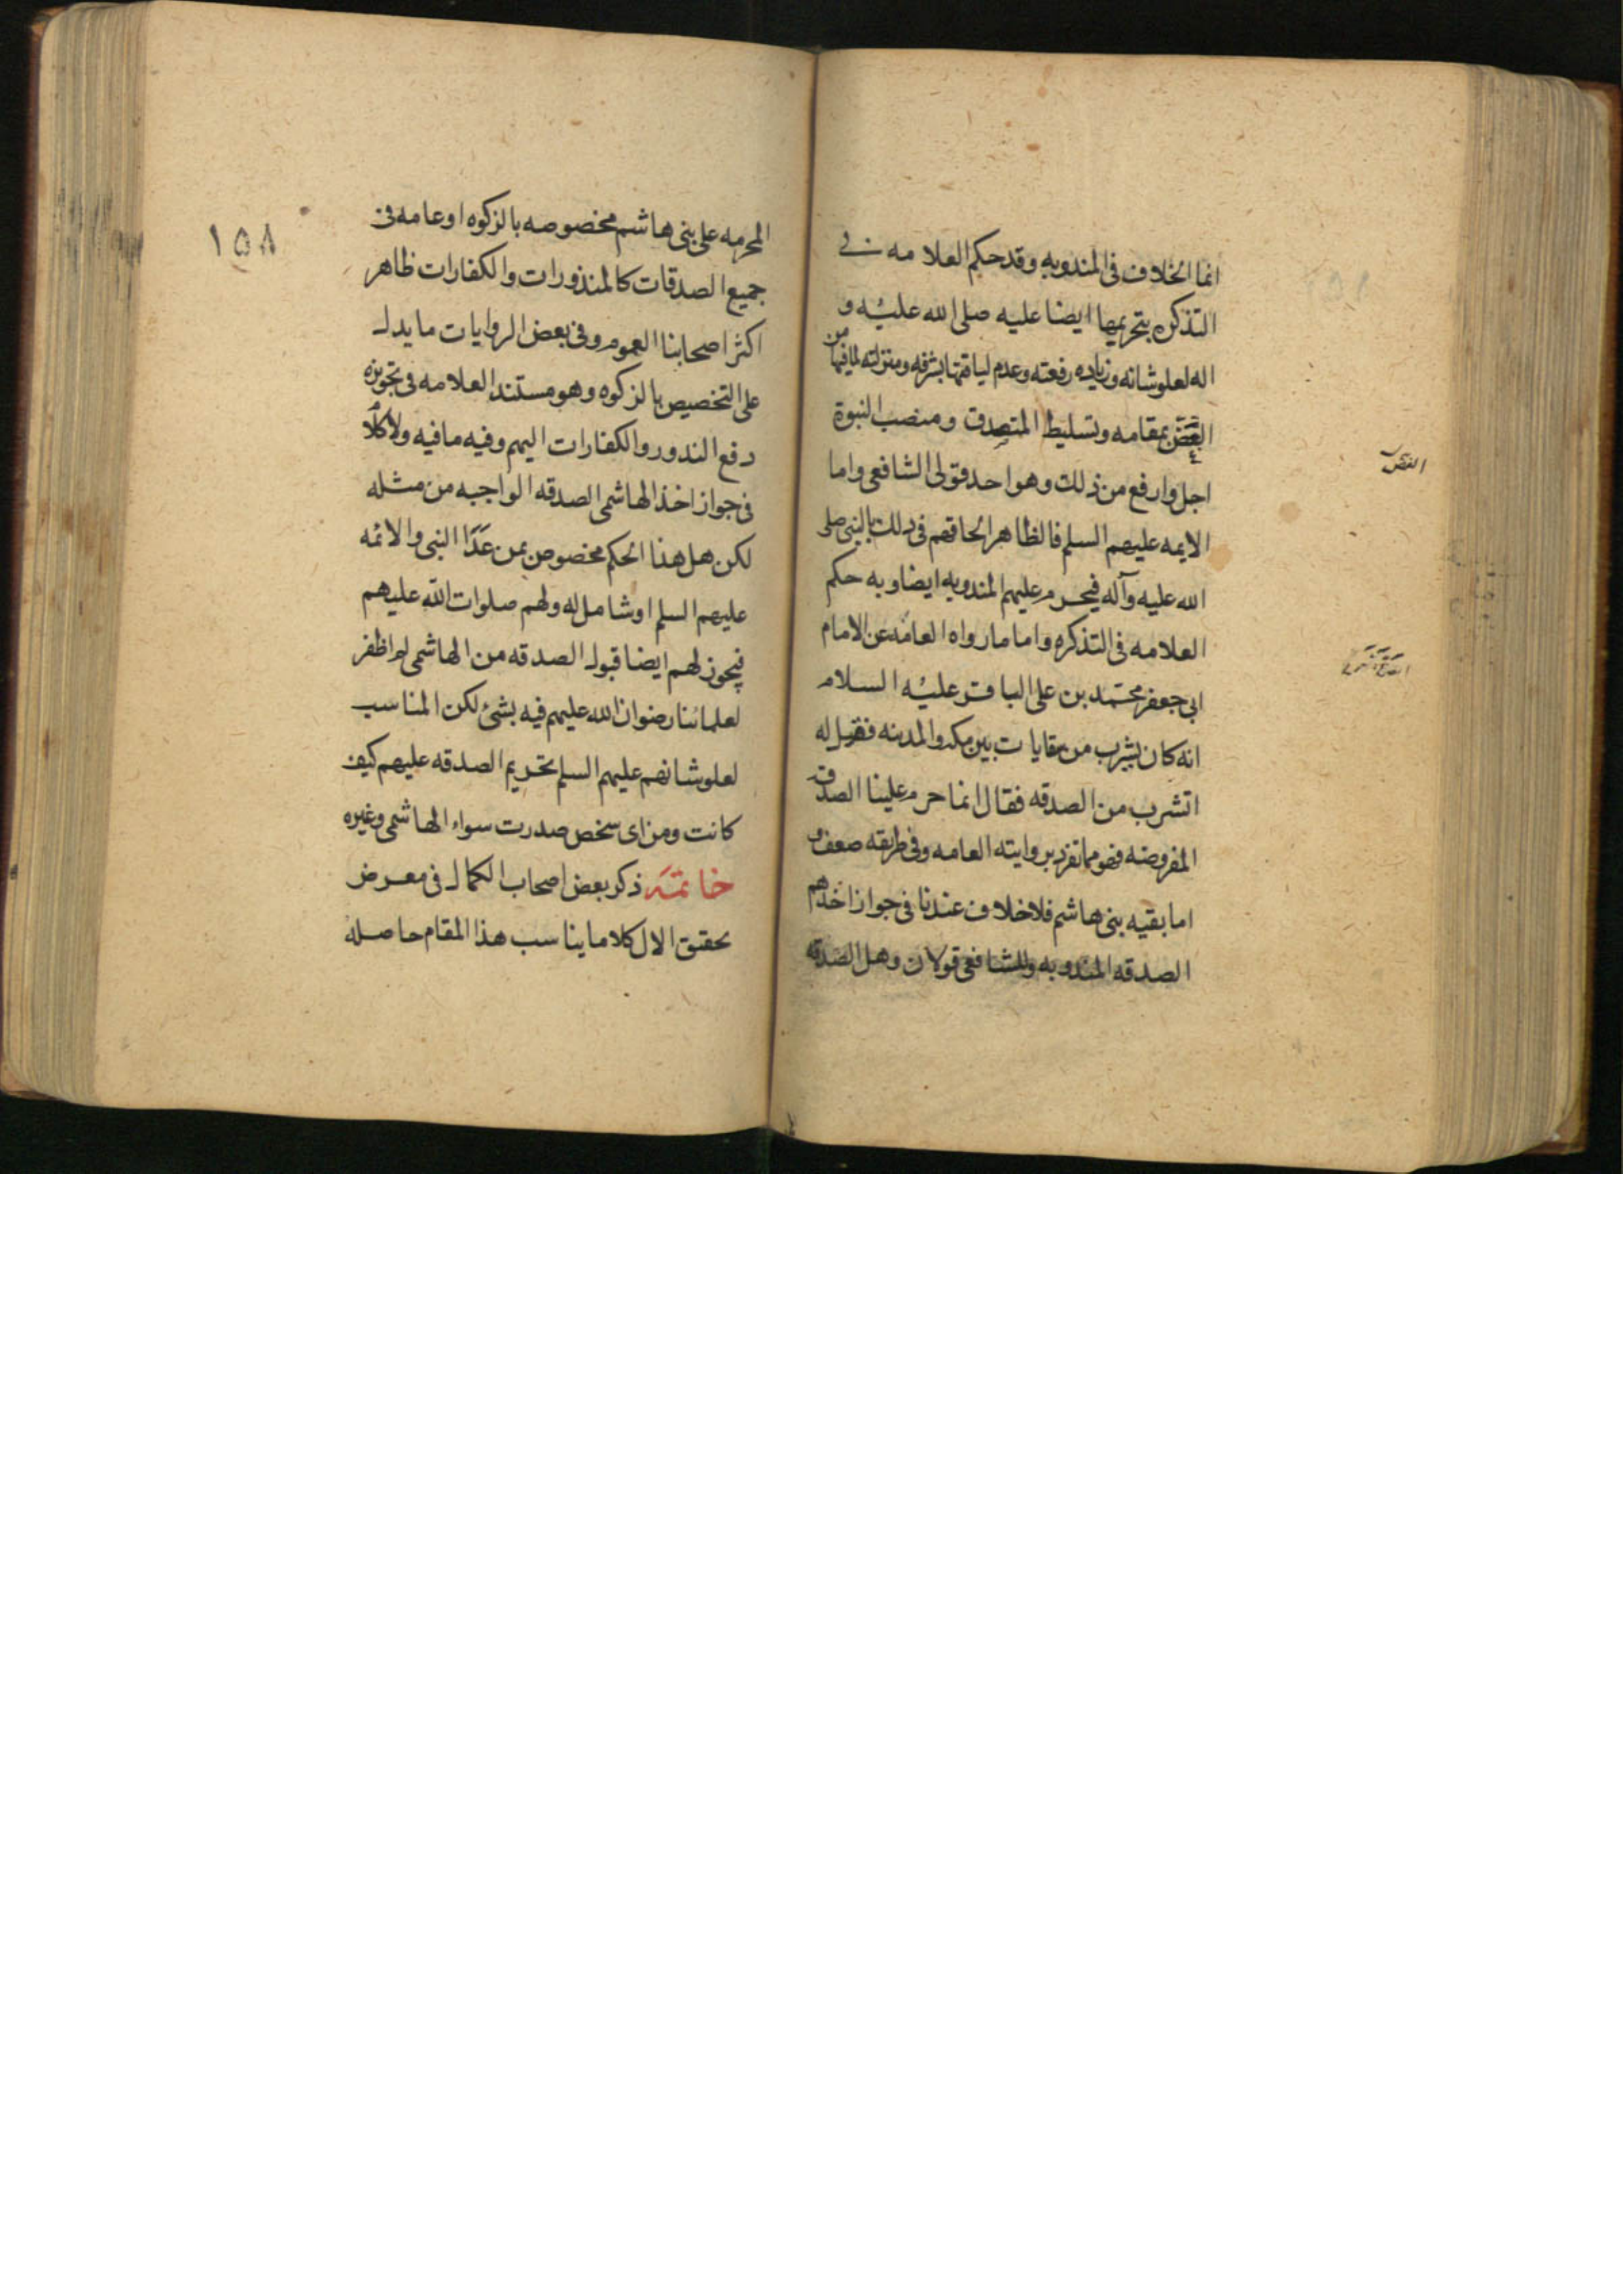 انما الخلاف فى المندوبه وقد حكم العلامه فى
التذكره بتحريمها ايضا عليه صلى الله عليه و
اله لعلو شانه وزياده رفعته وعدم لياقتها بشرفه ومنزلته لما فيها من
الغض بمقامه وتسليط المتصدق ومنصب النبوة
النقص
اجل وارفع من ذلك وهو احد قولى الشافعى واما
الايمه عليهم السلم فالظاهر الحاقهم فى ذلك بالنبى صلى
الله عليه وآله فيحرم عليهم المندوبه ايضا وبه حكم
العلامه فى التذكره واما ما رواه العامه عن الامام
ابى جعفر محمد بن على الباقر عليه السلام
انه كان يشرب من سقايات بين مكه والمدينه فقيل له
اتشرب من الصدقه فقال انما حرم علينا الصدقه
المفروضه فهو مما تفرد بروايته العامه وفى طريقه ضعف و
اما بقيه بنى هاشم فلا خلاف عندنا فى جواز اخذهم
الصدقه المندوبه وللشافعى قولان وهل الصدقه
١٥٨
المحرمه على بنى هاشم مخصوصه بالزكوه او عامه فى
جميع الصدقات كالمنذورات والكفارات ظاهر
اكثر اصحابنا العموم وفى بعض الروايات ما يدل
على التخصيص بالزكوه وهو مستند العلامه فى تجويزه
دفع النذور والكفارات اليهم وفيه ما فيه ولا كلام
فى جواز اخذ الهاشمى الصدقه الواجبه من مثله
لكن هل هذا الحكم مخصوص بمن عَدَا النبى والائمه
عليهم السلم او شامل له ولهم صلوات الله عليهم
فيجوز لهم ايضا قبول الصدقه من الهاشمى لم اظفر
لعلمائنا رضوان الله عليهم فيه بشئ لكن المناسب
لعلو شانهم عليهم السلم تحريم الصدقه عليهم كيف
كانت ومن اى سخص صدرت سواء الهاشمى وغيره
خاتمة ذكر بعض اصحاب الكمال فى معرض
تحقيق الال كلاما يناسب هذا المقام حاصله